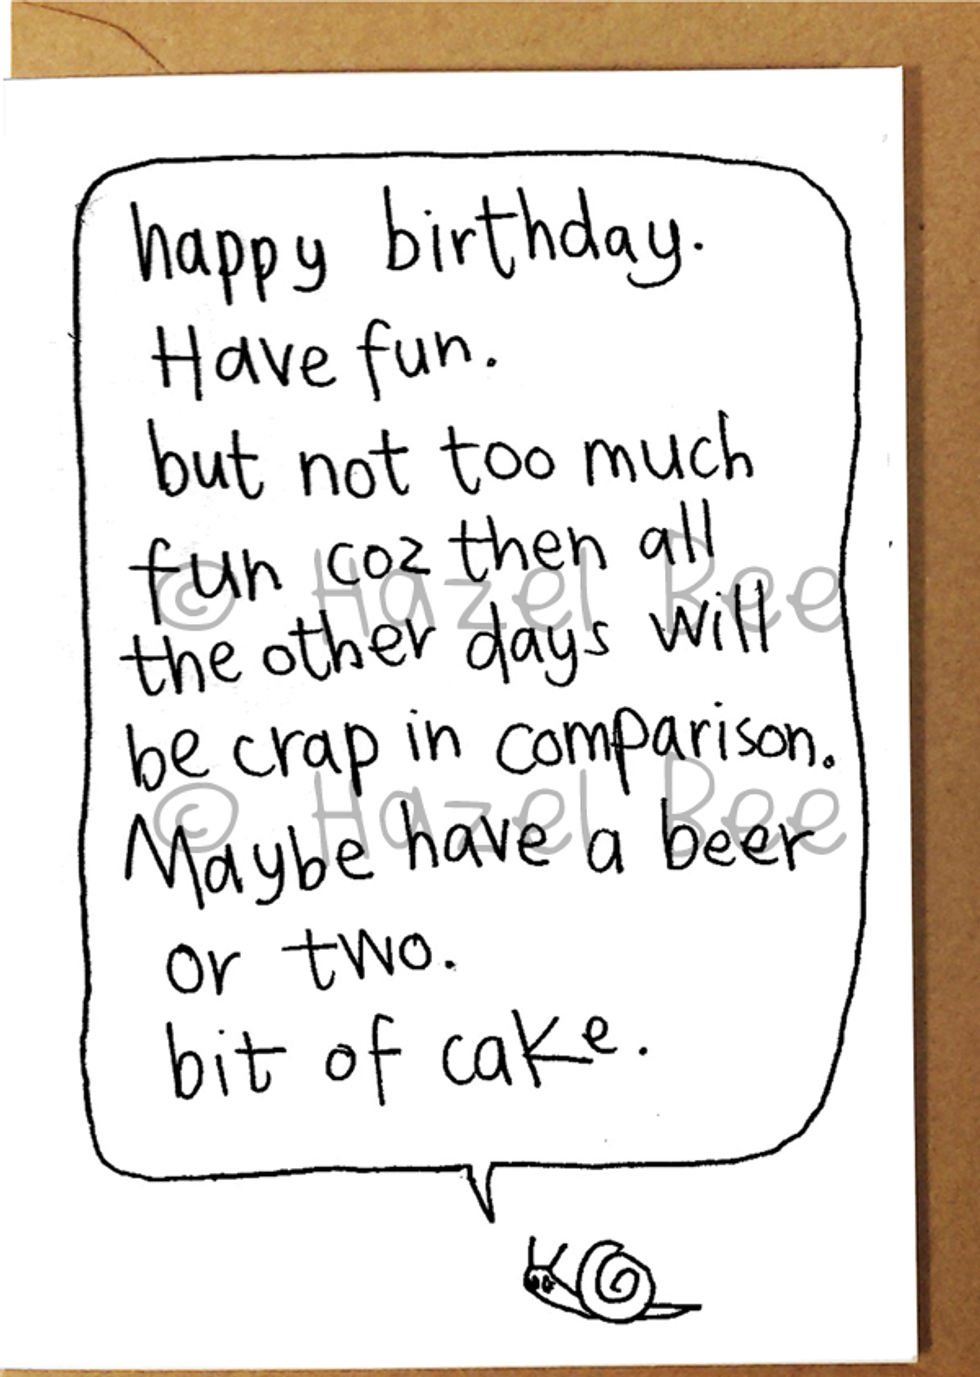 happy birthday.
Have fun.
but not too much
fun coz then all
the other days will
be crap in comparison.
Maybe have a beer
or two.
bit of cake.
© Hazel Bee
© Hazel Bee